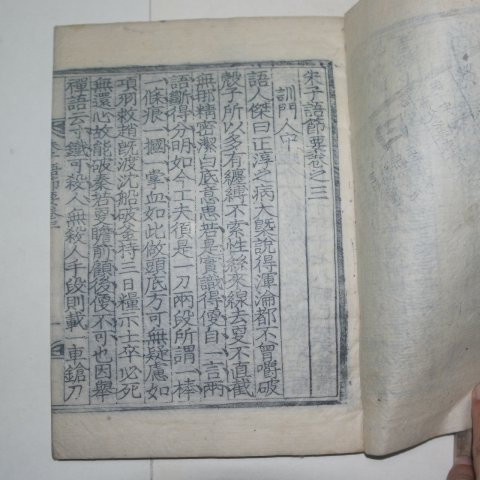 朱子語節要卷之三
訓門人中
語人傑曰正淳之病大槩說得渾淪都不曾嚼破
殼子所以多有纏縛不索性絲來線去更不直截
無那精密潔白底意思若是實識得便自一言兩
語斷得分明如今工夫須是一刀兩段所謂一棒
一條痕一摑一掌血如此做頭底方可無疑慮如
項羽救趙旣渡沈船破釜持三日糧示士卒必死
無還心故能破秦若更瞻前顧後便不可也因擧
禪語云寸鐵可殺人無殺人手段則載一車鎗刀